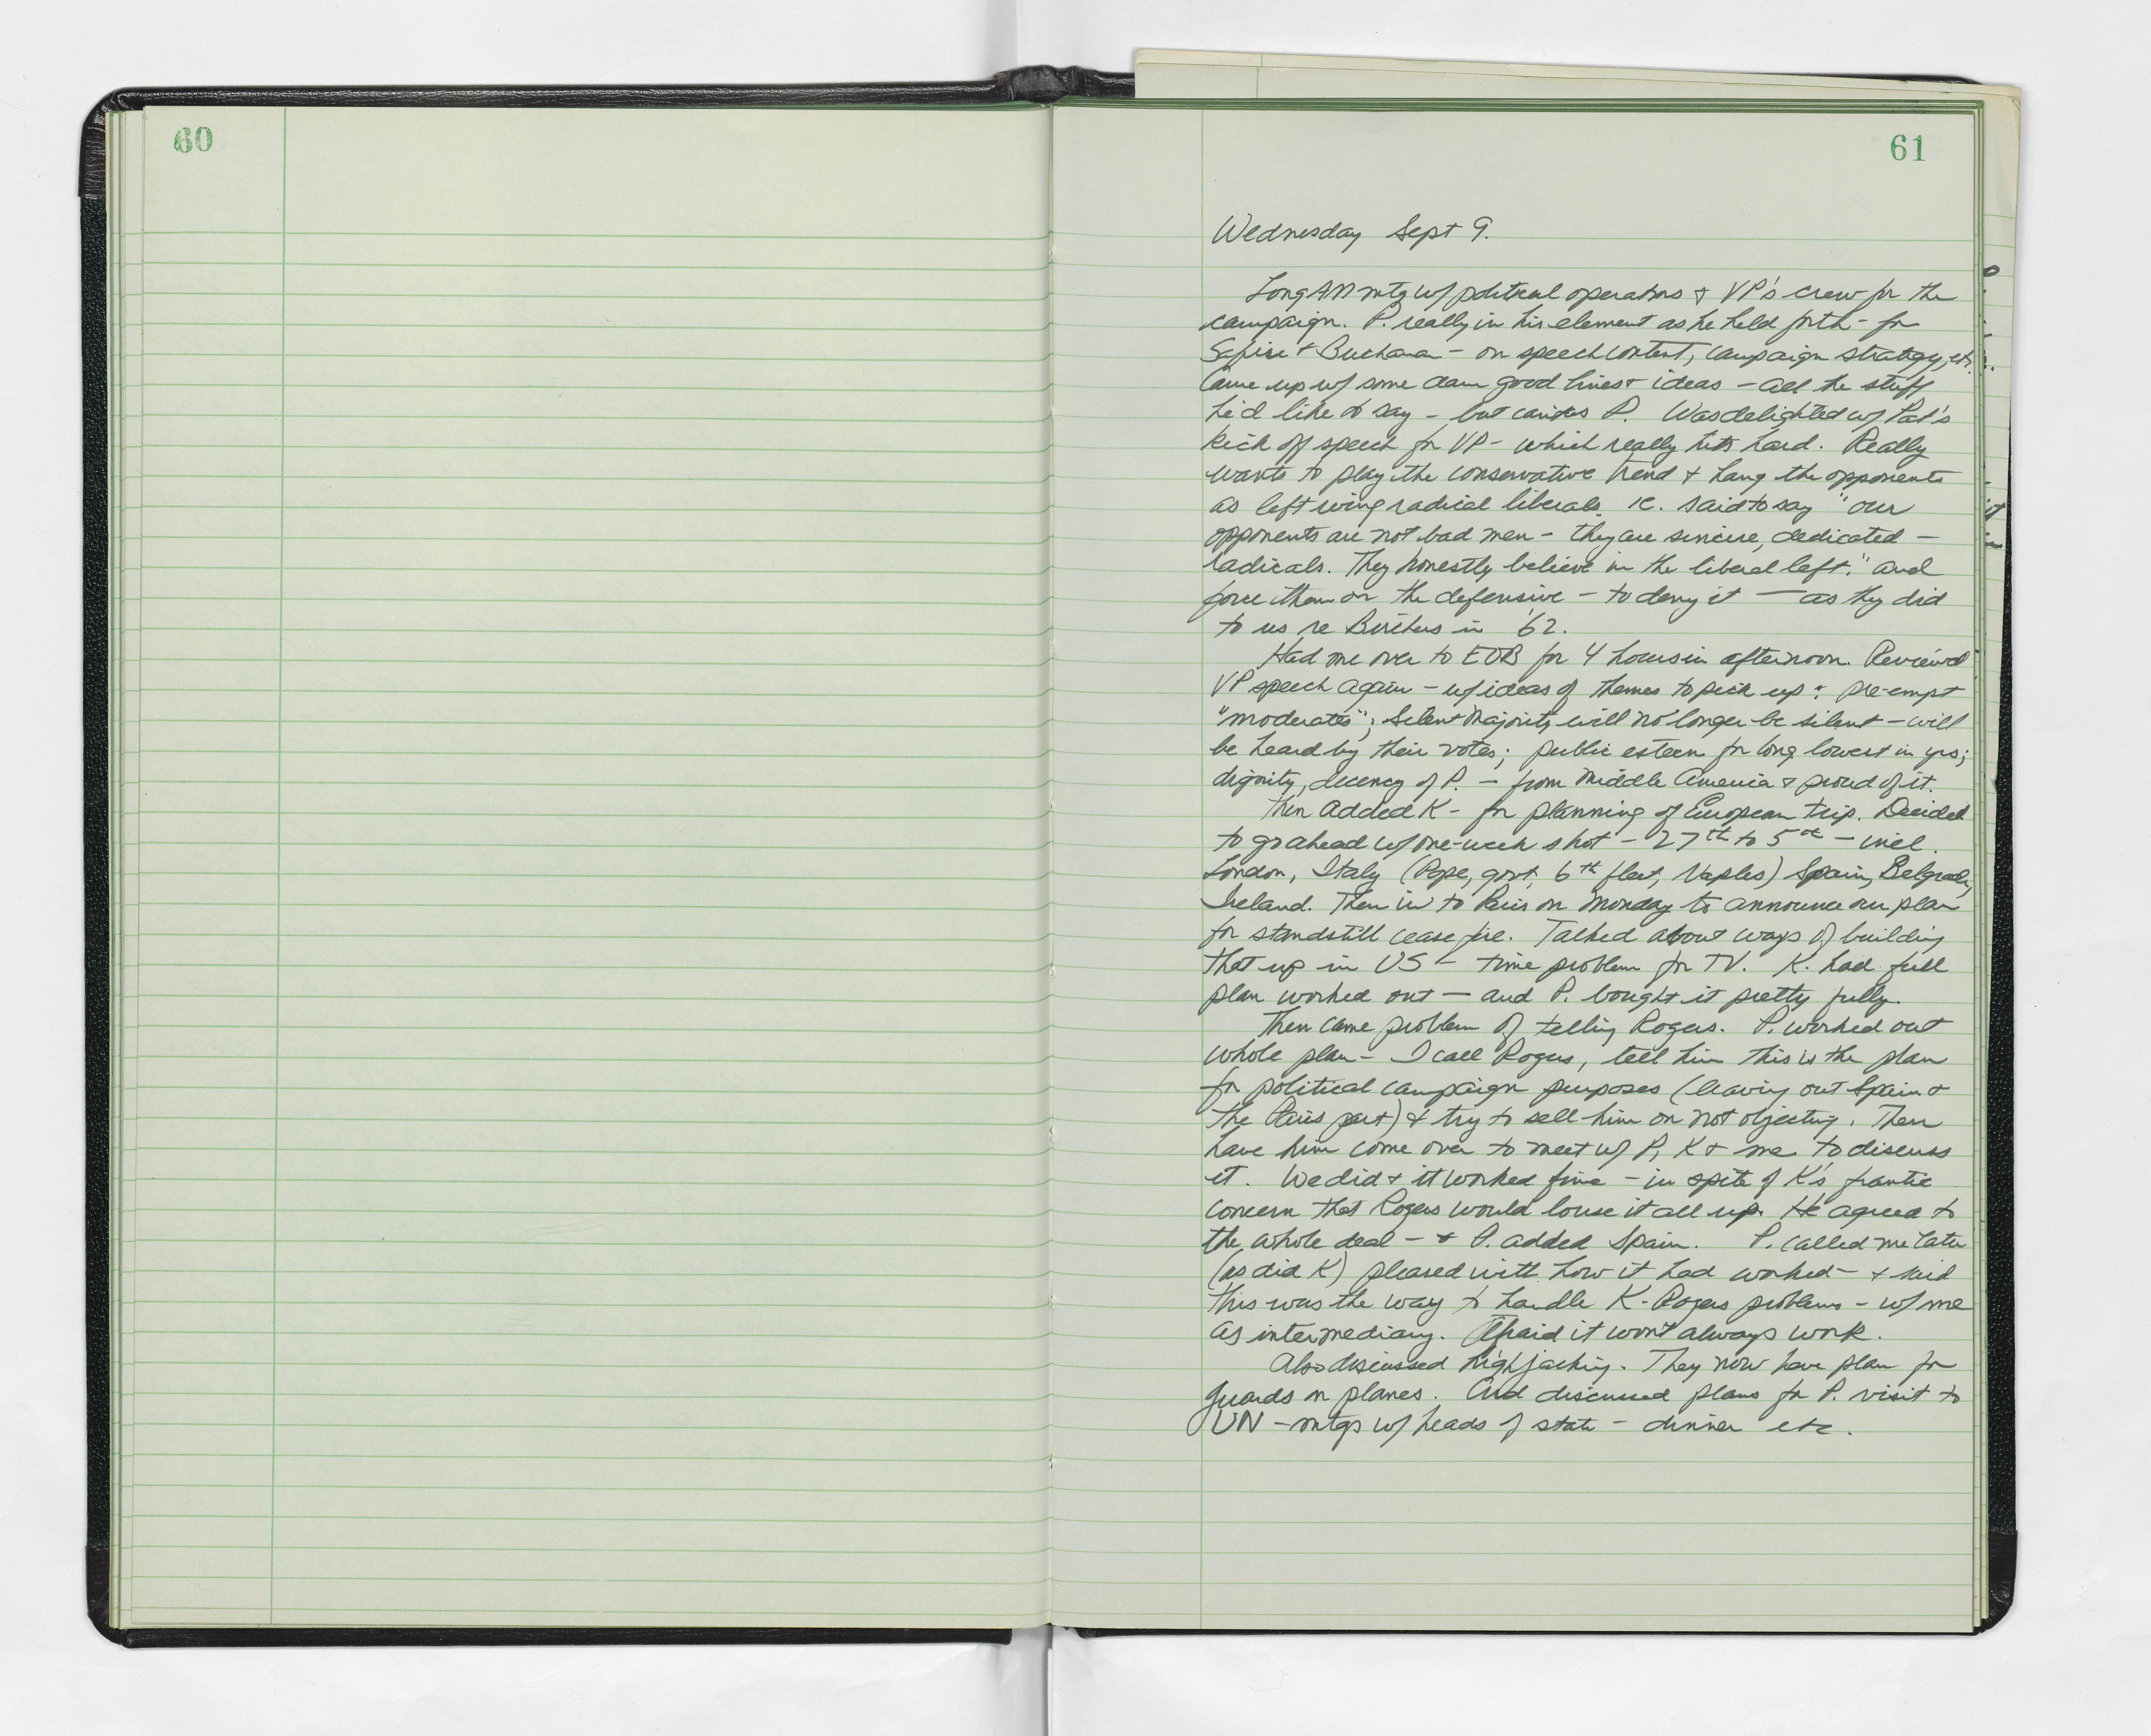 60
61
Wednesday Sept 9.
Long AM mtg w/ political operators & VP's crew for the
campaign. P. really in his element as he held forth - for
Safire & Buchanan - on speech content, campaign strategy, etc.
Came up w/ some dam good lines & ideas - all the stuff
he'd like to say - but can't as P. Was delighted w/ Pat's
kick off speech for VP - which really hits hard. Really
wants to play the conservative trend & hang the opponents
as left wing radical liberals. ie. said to say "our
opponents are not bad men - they are sincere, dedicated -
radicals. They honestly believe in the liberal left." and
force them on the defensive - to deny it - as they did
to us re Birchers in '62.
Had me over to EOB for 4 hours in afternoon. Reviewed
VP speech again - w/ ideas of themes to pick up: pre-empt
"moderates"; Silent Majority will no longer be silent - will
be heard by their votes; public esteem for Cong lowest in yrs;
dignity, decency of P. - from Middle America & proud of it.
Then added K - for planning of European trip. Decided
to go ahead w/ one-week shot - 27th to 5th - incl.
London, Italy (Pope, govt, 6th fleet, Naples) Spain, Belgrade,
Ireland. Then in to Paris on Monday to announce our plan
for standstill cease fire. Talked about ways of building
that up in US - time problem for TV. K. had full
plan worked out - and P. bought it pretty fully.
Then came problem of telling Rogers. P. worked out
whole plan - I call Rogers, tell him this is the plan
for political campaign purposes (leaving out Spain &
the Paris part) & try to sell him on not objecting. Then
have him come over to meet w/ P, K & me to discuss
it. We did & it worked fine - in spite of K's frantic
concern that Rogers would louse it all up. He agreed to
the whole deal - & P. added Spain. P. called me later
(as did K) pleased with how it had worked - & said
this was the way to handle K-Rogers problems - w/ me
as intermediary. Afraid it won't always work.
Also discussed highjacking. They now have plan for
guards on planes. And discussed plans for P. visit to
UN - mtgs w/ heads of state - dinner etc.